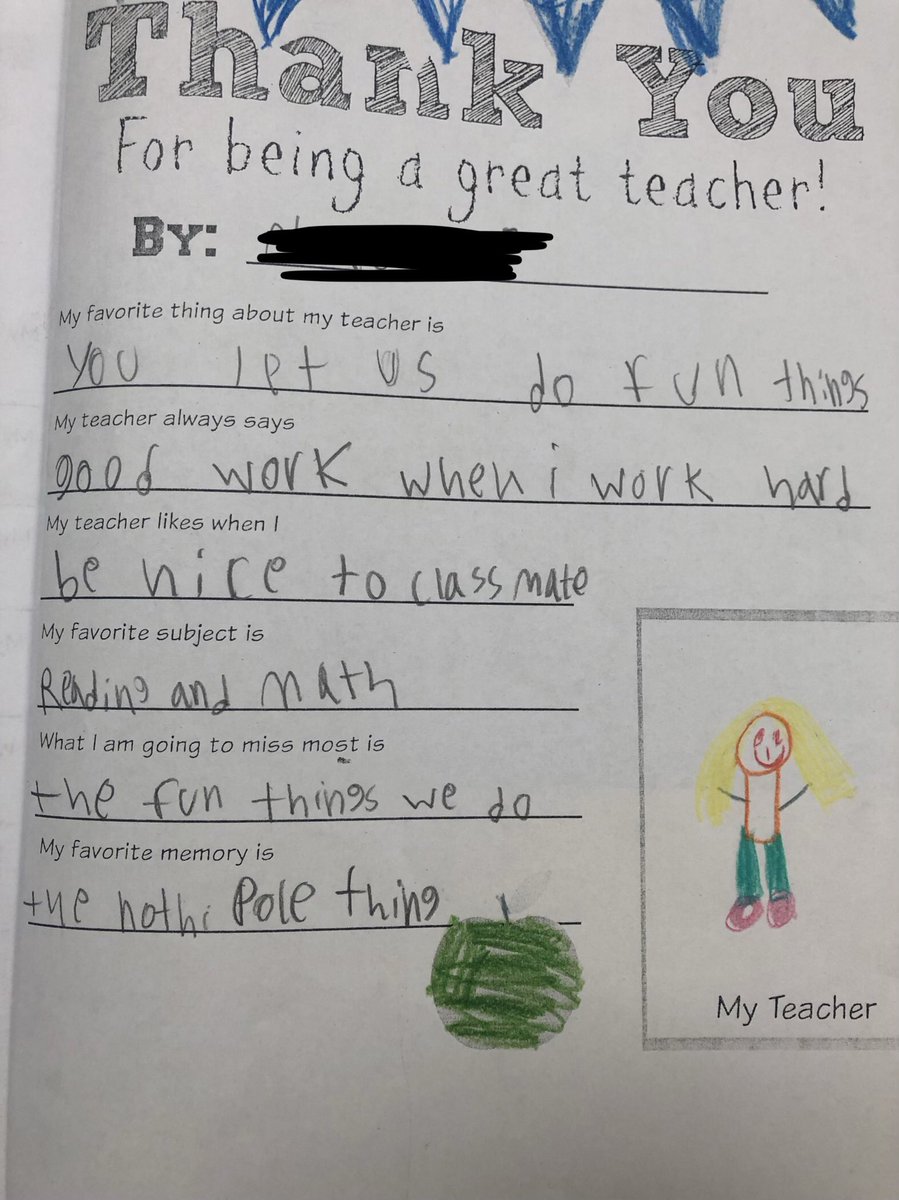 Thank You
For being a great teacher!
By:
My favorite thing about my teacher is
you let us do fun things
My teacher always says
good work when i work hard
My teacher likes when I
be nice to classmate
My favorite subject is
Reading and math
What I am going to miss most is
the fun things we do
My favorite memory is
the nothi Pole thing
My Teacher